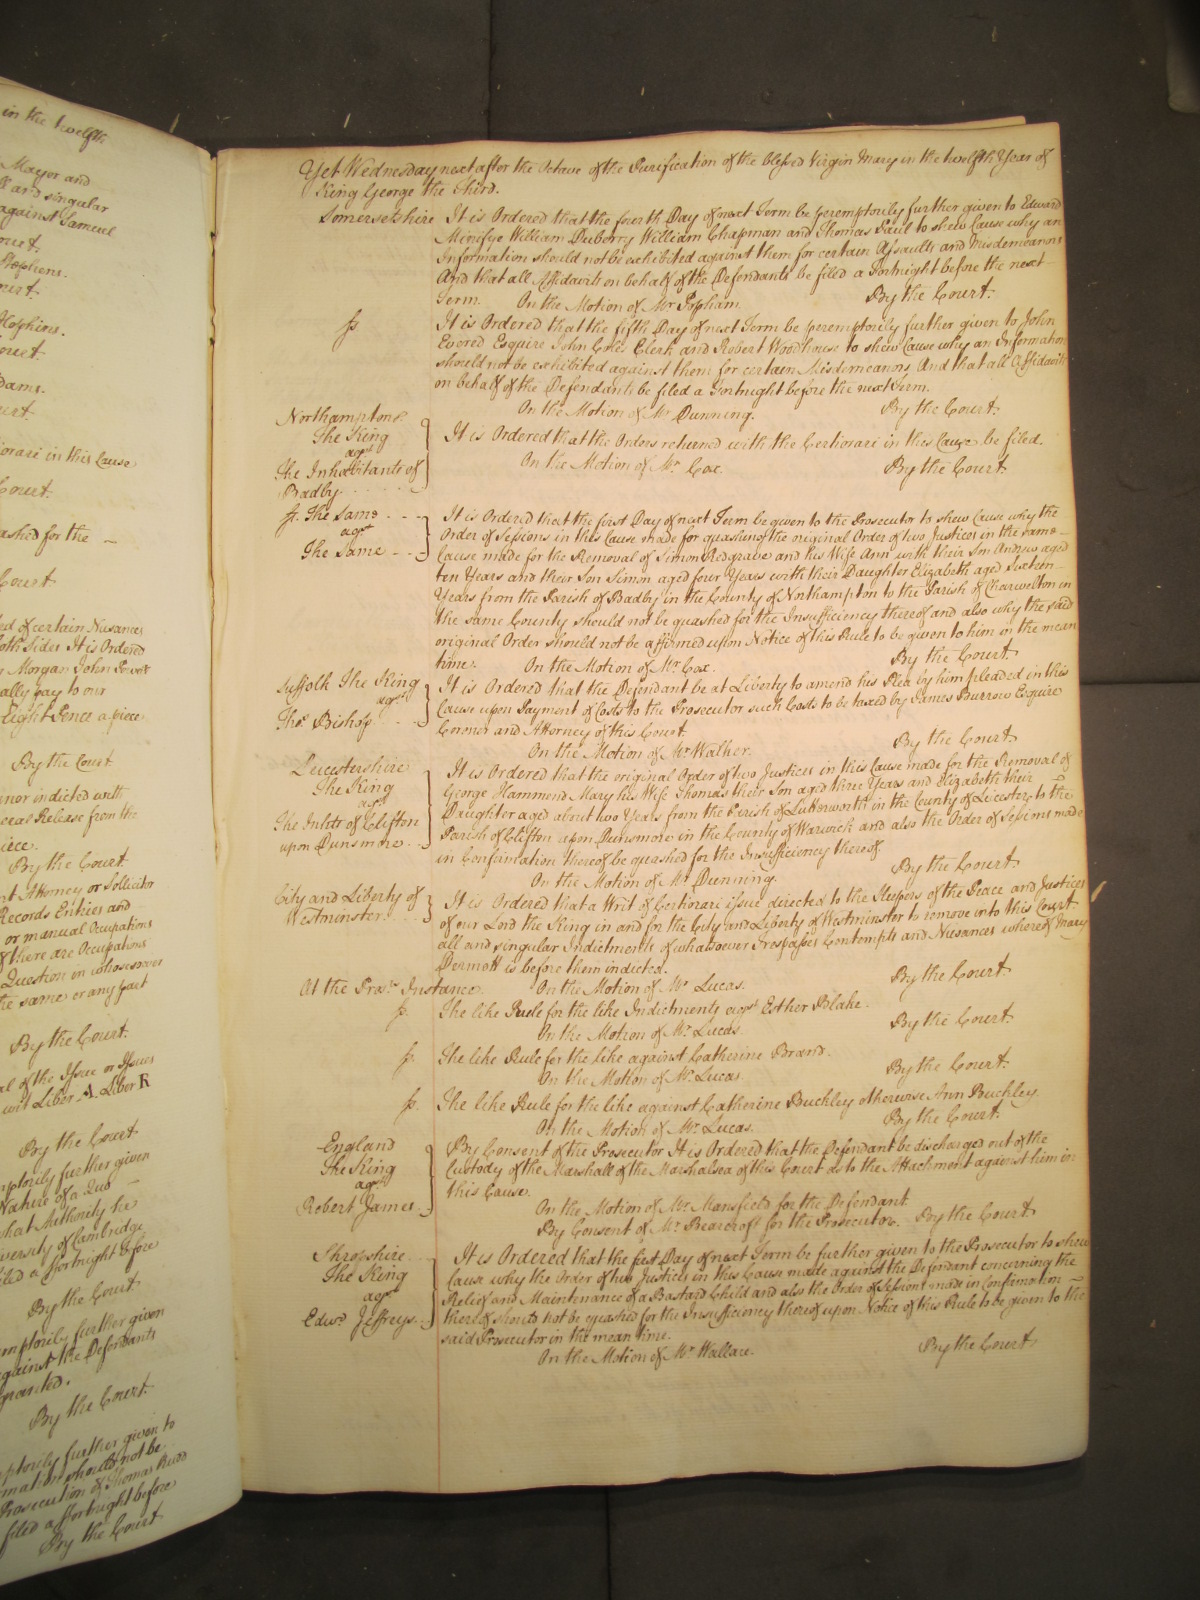 in the twelfth
Mayor and
all and singular
against Samuel
Court.
Stephens.
Court.
Hopkins.
Court.
Adams.
Court
Certiorari in this Cause
Court.
quashed for the
Court
of certain Nusances
both Sides It is Ordered
Morgan John Powell
pay to our
Eight Pence a piece
By the Court
indicted with
Release from the
piece.
By the Court
Attorney or Sollicitor
Records Entries and
or manual Occupations
there are Occupations
Question in whosoever
the same or any part
By the Court.
of the Issue or Issues
Liber A Liber K
By the Court.
peremptorily further given
Nature of a Quo
what Authority he
University of Cambridge
filed a ffortnight before
By the Court
peremptorily further given
against the Defendants
granted.
By the Court.
peremptorily further given to
Information should not be
Prosecution of Thomas Rudd
filed a ffortnight before
By the Court
Yet Wednesday next after the Octave of the Purification of the blessed Virgin Mary in the twelfth Year of
King George the Third.
Somersetshire It is Ordered that the fourth Day of next Term be peremptorily further given to Edward
Minifye William Duberry William Chapman and Thomas Paul to shew Cause why an
Information should not be exhibited against them for certain Assaults and Misdemeanors
And that all Affidavits on behalf of the Defendants be filed a Fortnight before the next
Term. On the Motion of Mr. Popham. By the Court.
It is Ordered that the fifth Day of next Term be peremptorily further given to John
Evered Esquire John Coles Clerk and Robert Woodhouse to shew Cause why an Information
should not be exhibited against them for certain Misdemeanors And that all Affidavits
on behalf of the Defendants be filed a Fortnight before the next Term.
On the Motion of Mr. Dunning. By the Court.
Northampton
The King
agst
The Inhabitants of
Badby
It is Ordered that the Orders returned with the Certiorari in this Cause be filed.
On the Motion of Mr. Cox. By the Court.
The Same
agst
The Same
It is Ordered that the first Day of next Term be given to the Prosecutor to shew Cause why the
Order of Sessions in this Cause made for quashing the original Order of two Justices in the same
Cause made for the Removal of Simon Redgrave and his Wife Ann with their Son Andrew aged
ten Years and their Son Simon aged four Years with their Daughter Elizabeth aged Sixteen
Years from the Parish of Badby in the County of Northampton to the Parish of Charwelton in
the same County should not be quashed for the Insufficiency thereof and also why the said
original Order should not be affirmed upon Notice of this Rule to be given to him in the mean
time. On the Motion of Mr. Cox. By the Court.
Suffolk The King
agst
Thos. Bishop
It is Ordered that the Defendant be at Liberty to amend his Plea by him pleaded in this
Cause upon Payment of Costs to the Prosecutor such Costs to be taxed by James Burrow Esquire
Coroner and Attorney of this Court.
On the Motion of Mr. Walker. By the Court.
Leicestershire
The King
agst
The Inhts of Clifton
upon Dunsmore
It is Ordered that the original Order of two Justices in this Cause made for the Removal of
George Hammond Mary his Wife Thomas their Son aged three Years and Elizabeth their
Daughter aged about two Years from the Parish of Lutterworth in the County of Leicester to the
Parish of Clifton upon Dunsmore in the County of Warwick and also the Order of Sessions made
in Confirmation thereof be quashed for the Insufficiency thereof
On the Motion of Mr. Dunning. By the Court.
City and Liberty of
Westminster
It is Ordered that a Writ of Certiorari issue directed to the Keepers of the Peace and Justices
of our Lord the King in and for the City and Liberty of Westminster to remove into this Court
all and singular Indictments of whatsoever Trespasses Contempts and Nusances whereof Mary
Dermott is before them indicted.
At the Pros. Instance. On the Motion of Mr. Lucas. By the Court.
The like Rule for the like Indictments agst Esther Blake.
On the Motion of Mr. Lucas. By the Court.
The like Rule for the like against Catherine Brand.
On the Motion of Mr. Lucas. By the Court.
The like Rule for the like against Catherine Buckley otherwise Ann Buckley.
On the Motion of Mr. Lucas. By the Court.
England
The King
agst
Robert James
By Consent of the Prosecutor It is Ordered that the Defendant be discharged out of the
Custody of the Marshall of the Marshalsea of this Court as to the Attachment against him in
this Cause.
On the Motion of Mr. Mansfield for the Defendant
By Consent of Mr. Bearcroft for the Prosecutor. By the Court
Shropshire
The King
agst
Edwd. Jeffreys
It is Ordered that the first Day of next Term be further given to the Prosecutor to shew
Cause why the Order of two Justices in this Cause made against the Defendant concerning the
Relief and Maintenance of a Bastard Child and also the Order of Sessions made in Confirmation
thereof should not be quashed for the Insufficiency thereof upon Notice of this Rule to be given to the
said Prosecutor in the mean time.
On the Motion of Mr. Wallace. By the Court